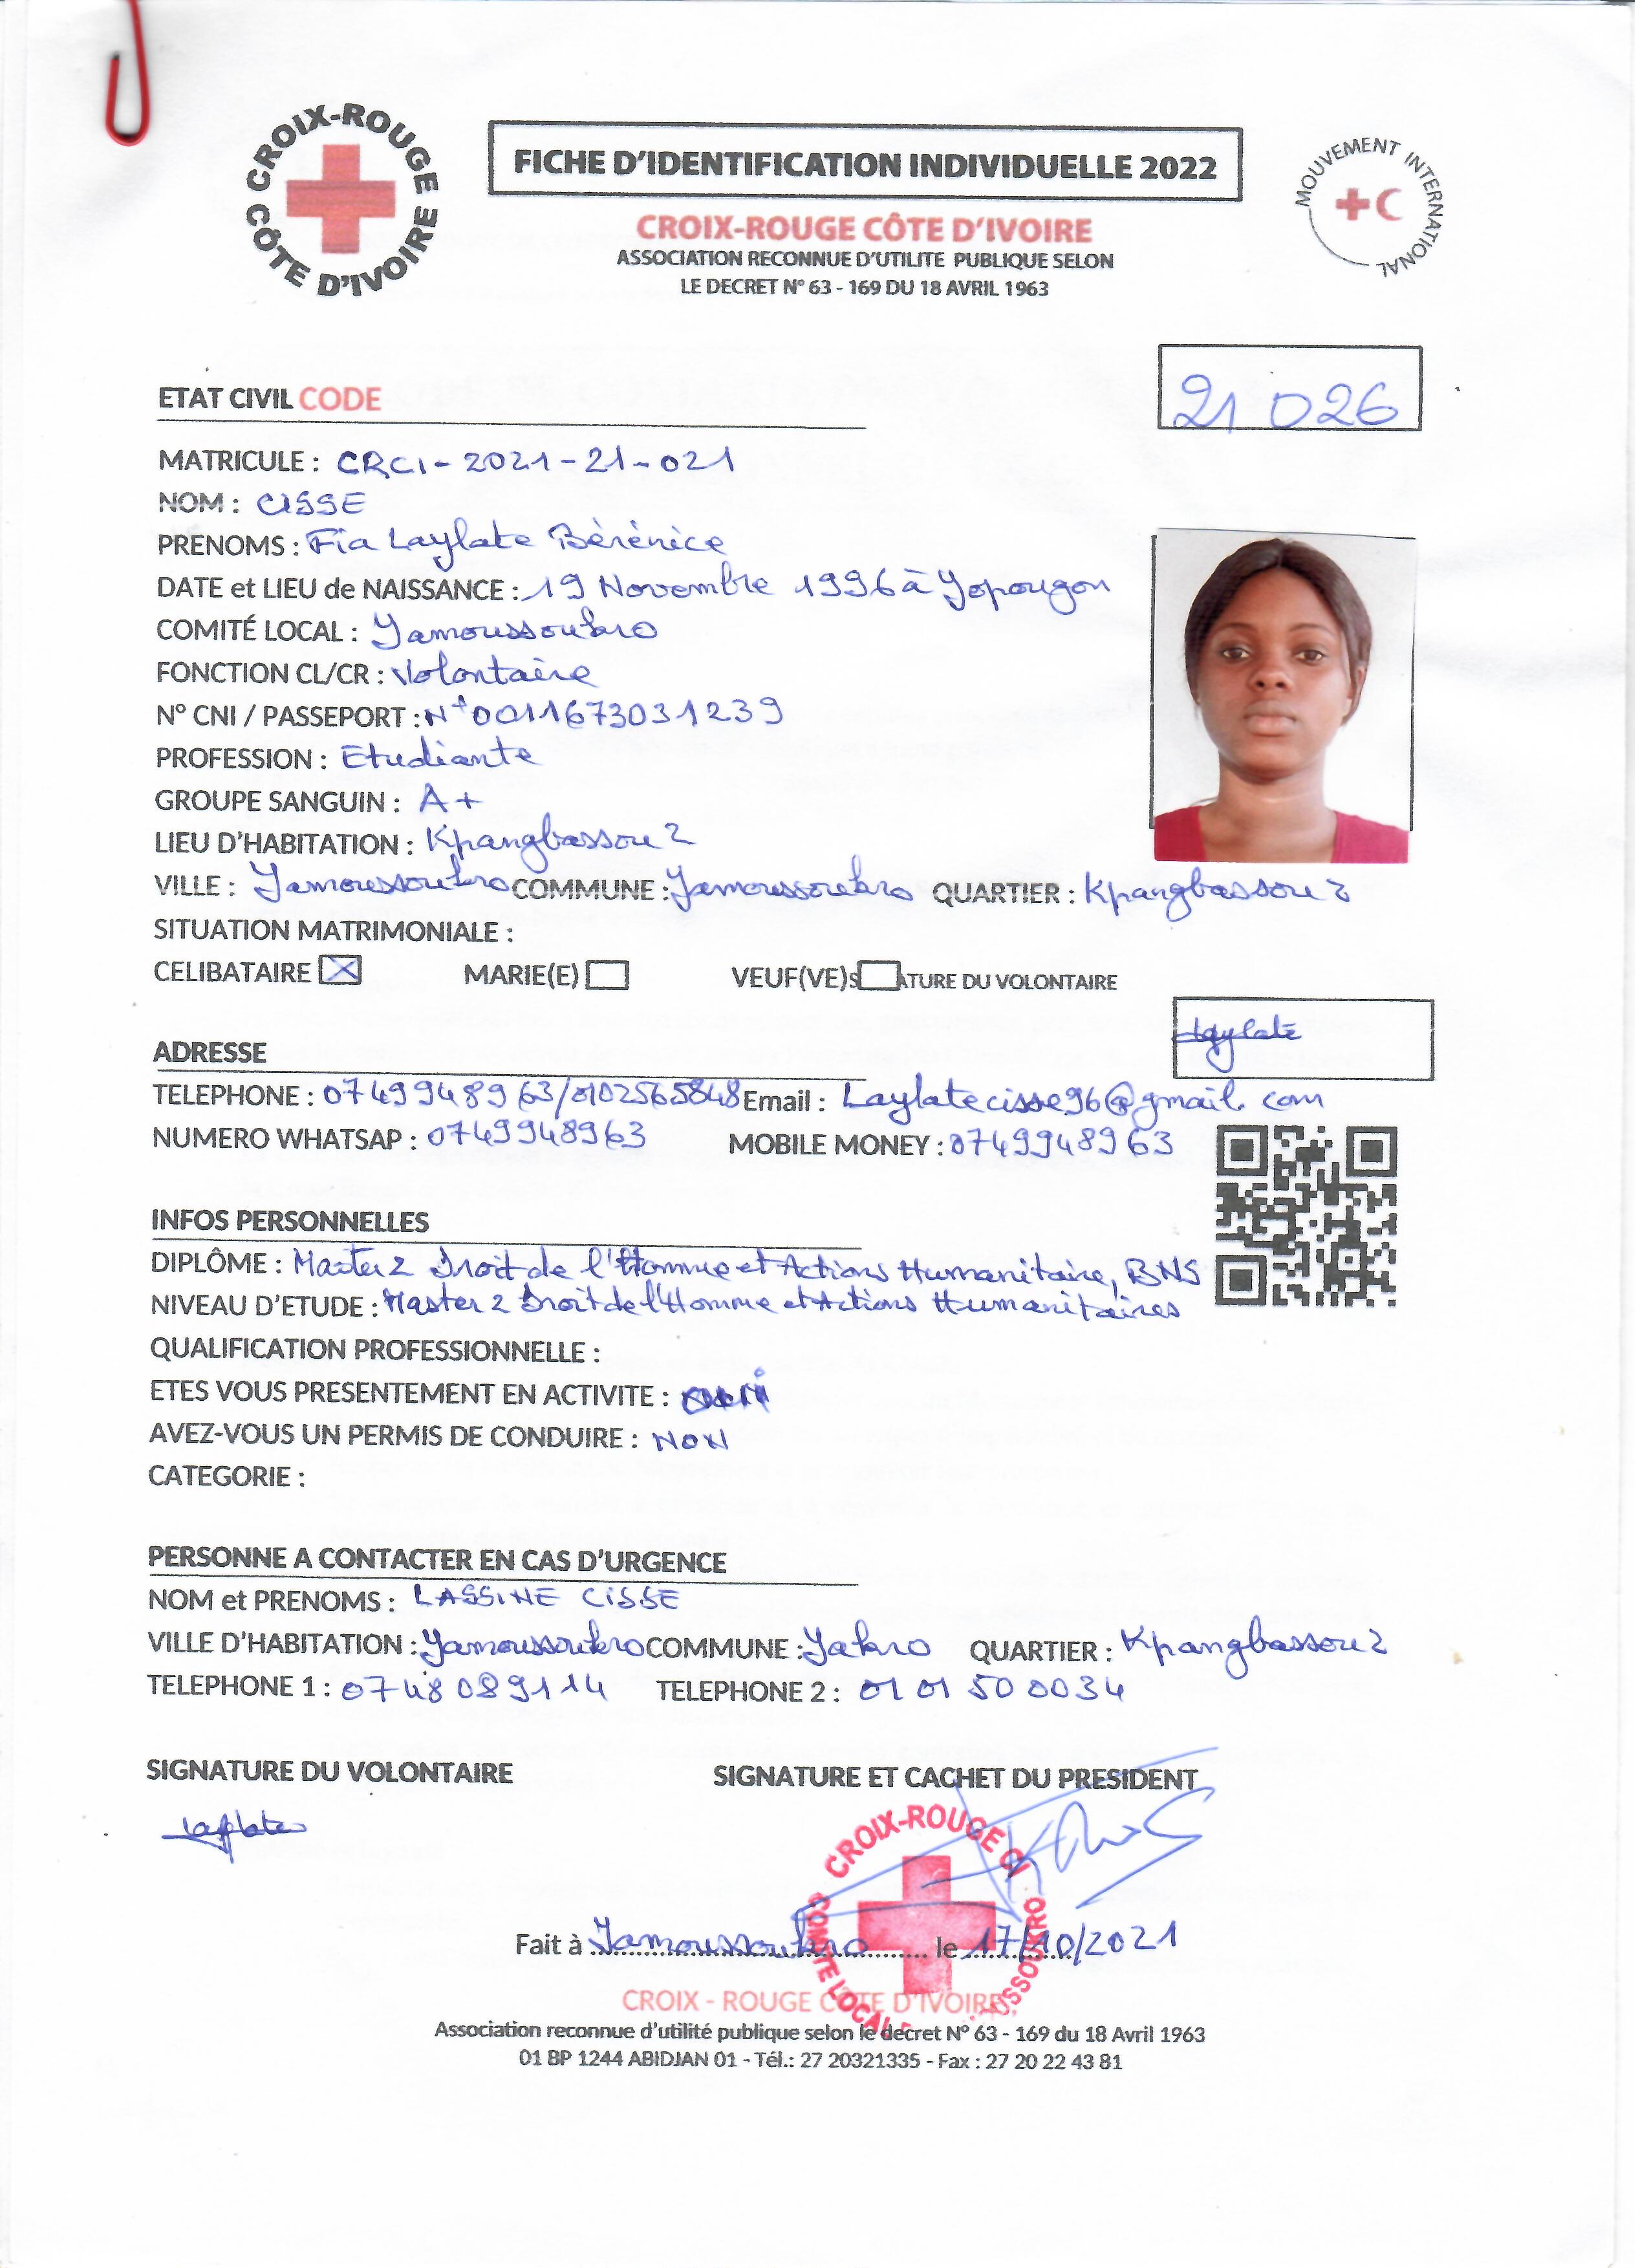 CROIX-ROUGE CÔTE D'IVOIRE
FICHE D'IDENTIFICATION INDIVIDUELLE 2022
MOUVEMENT INTERNATIONAL
CROIX-ROUGE CÔTE D'IVOIRE
ASSOCIATION RECONNUE D'UTILITE PUBLIQUE SELON
LE DECRET N° 63 - 169 DU 18 AVRIL 1963
21 026
ETAT CIVIL CODE
MATRICULE : CRCI-2021-21-021
NOM : CISSE
PRENOMS : Fia Laylate Bérénice
DATE et LIEU de NAISSANCE : 19 Novembre 1996 à Yopougon
COMITÉ LOCAL : Yamoussoukro
FONCTION CL/CR : Volontaire
N° CNI / PASSEPORT : N° 0011673031239
PROFESSION : Etudiante
GROUPE SANGUIN : A+
LIEU D'HABITATION : Kpangbassou 2
VILLE : Yamoussoukro COMMUNE : Yamoussoukro QUARTIER : Kpangbassou 2
SITUATION MATRIMONIALE :
CELIBATAIRE MARIE(E) VEUF(VE) SATURE DU VOLONTAIRE
Laylate
ADRESSE
TELEPHONE : 0749948963/0102565848 Email : Laylatecisse96@gmail.com
NUMERO WHATSAP : 0749948963 MOBILE MONEY : 0749948963
INFOS PERSONNELLES
DIPLÔME : Master 2 Droit de l'Homme et Actions Humanitaire, BNS
NIVEAU D'ETUDE : Master 2 Droit de l'Homme et Actions Humanitaires
QUALIFICATION PROFESSIONNELLE :
ETES VOUS PRESENTEMENT EN ACTIVITE :
AVEZ-VOUS UN PERMIS DE CONDUIRE : NON
CATEGORIE :
PERSONNE A CONTACTER EN CAS D'URGENCE
NOM et PRENOMS : LASSINE CISSE
VILLE D'HABITATION : Yamoussoukro COMMUNE : Yakro QUARTIER : Kpangbassou 2
TELEPHONE 1 : 0748089114 TELEPHONE 2 : 01 01 50 0034
SIGNATURE DU VOLONTAIRE SIGNATURE ET CACHET DU PRESIDENT
Laylate
CROIX-ROUGE CI
Fait à Yamoussoukro le 17/10/2021
CROIX - ROUGE COTE D'IVOIRE
Association reconnue d'utilité publique selon le décret N° 63 - 169 du 18 Avril 1963
01 BP 1244 ABIDJAN 01 - Tél.: 27 20321335 - Fax : 27 20 22 43 81